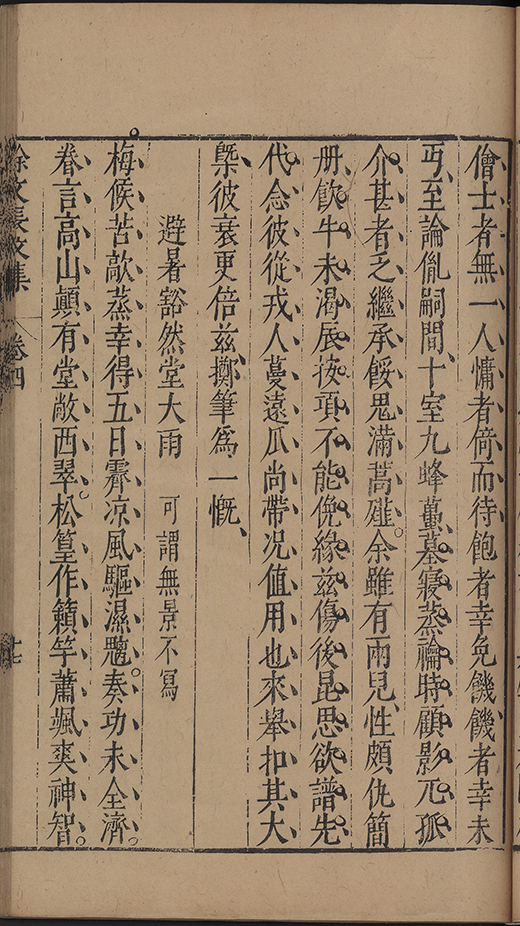 儈士者無一人慵者倚而待飽者幸免饑饑者幸未
丐至論胤嗣間十室九蜂蠆墓寢蒸禴時顧影兀孤
介甚者乏繼承餒思滿蒿磋余雖有兩兒性頗仇簡
册飲牛未渴辰按項不能俛緣兹傷後昆思欲譜先
代念彼從戎人蔓遠瓜尚帶况值用也來舉扣其大
槩彼衰更倍兹擲筆爲一慨
避暑豁然堂大雨 可謂無景不寫
梅候苦歊蒸幸得五日霽凉風驅濕魑奏功未全濟
眷言高山巔有堂敞西翠松篁作籟竽蕭颯爽神智
徐文長文集 卷四 十七